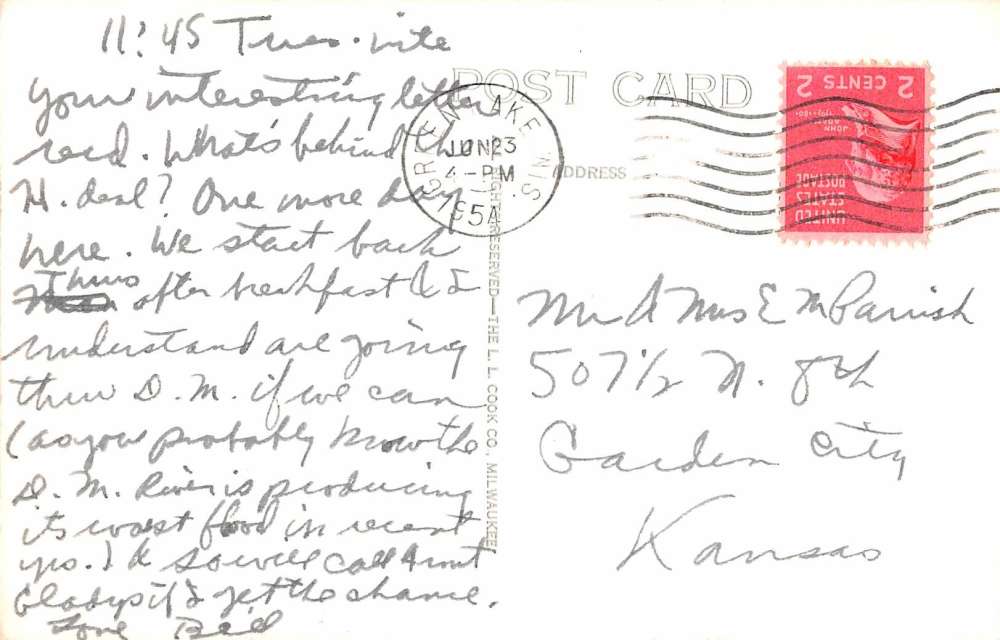 11:45 Tues. nite
Your interesting letter
recd. What's behind the
H. deal? One more day
here. We start back
Thurs after breakfast & I
understand are going
thru D. M. if we can
(as you probably know the
D. M. River is producing
its worst flood in recent
yrs.) & so will call Aunt
Gladys if I get the chance.
Love Bill
POST CARD
ADDRESS
GREEN LAKE WIS.
JUN 23
4-PM
195
RIGHTS RESERVED—THE L. L. COOK CO., MILWAUKEE
2 CENTS 2
JOHN ADAMS
UNITED
STATES
POSTAGE
Mr & Mrs E M Parrish
507 1/2 N. 8th
Garden City
Kansas